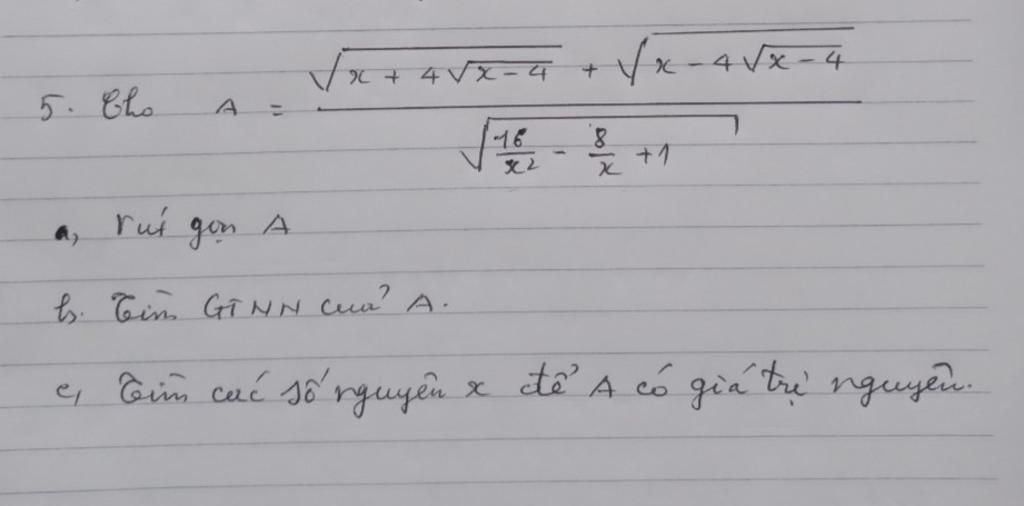 5. Cho A = \frac{\sqrt{x + 4\sqrt{x-4}} + \sqrt{x - 4\sqrt{x-4}}}{\sqrt{\frac{16}{x^2} - \frac{8}{x} + 1}}
a, rút gọn A
b. Tìm GTNN của A.
c, Tìm các số nguyên x để A có giá trị nguyên.